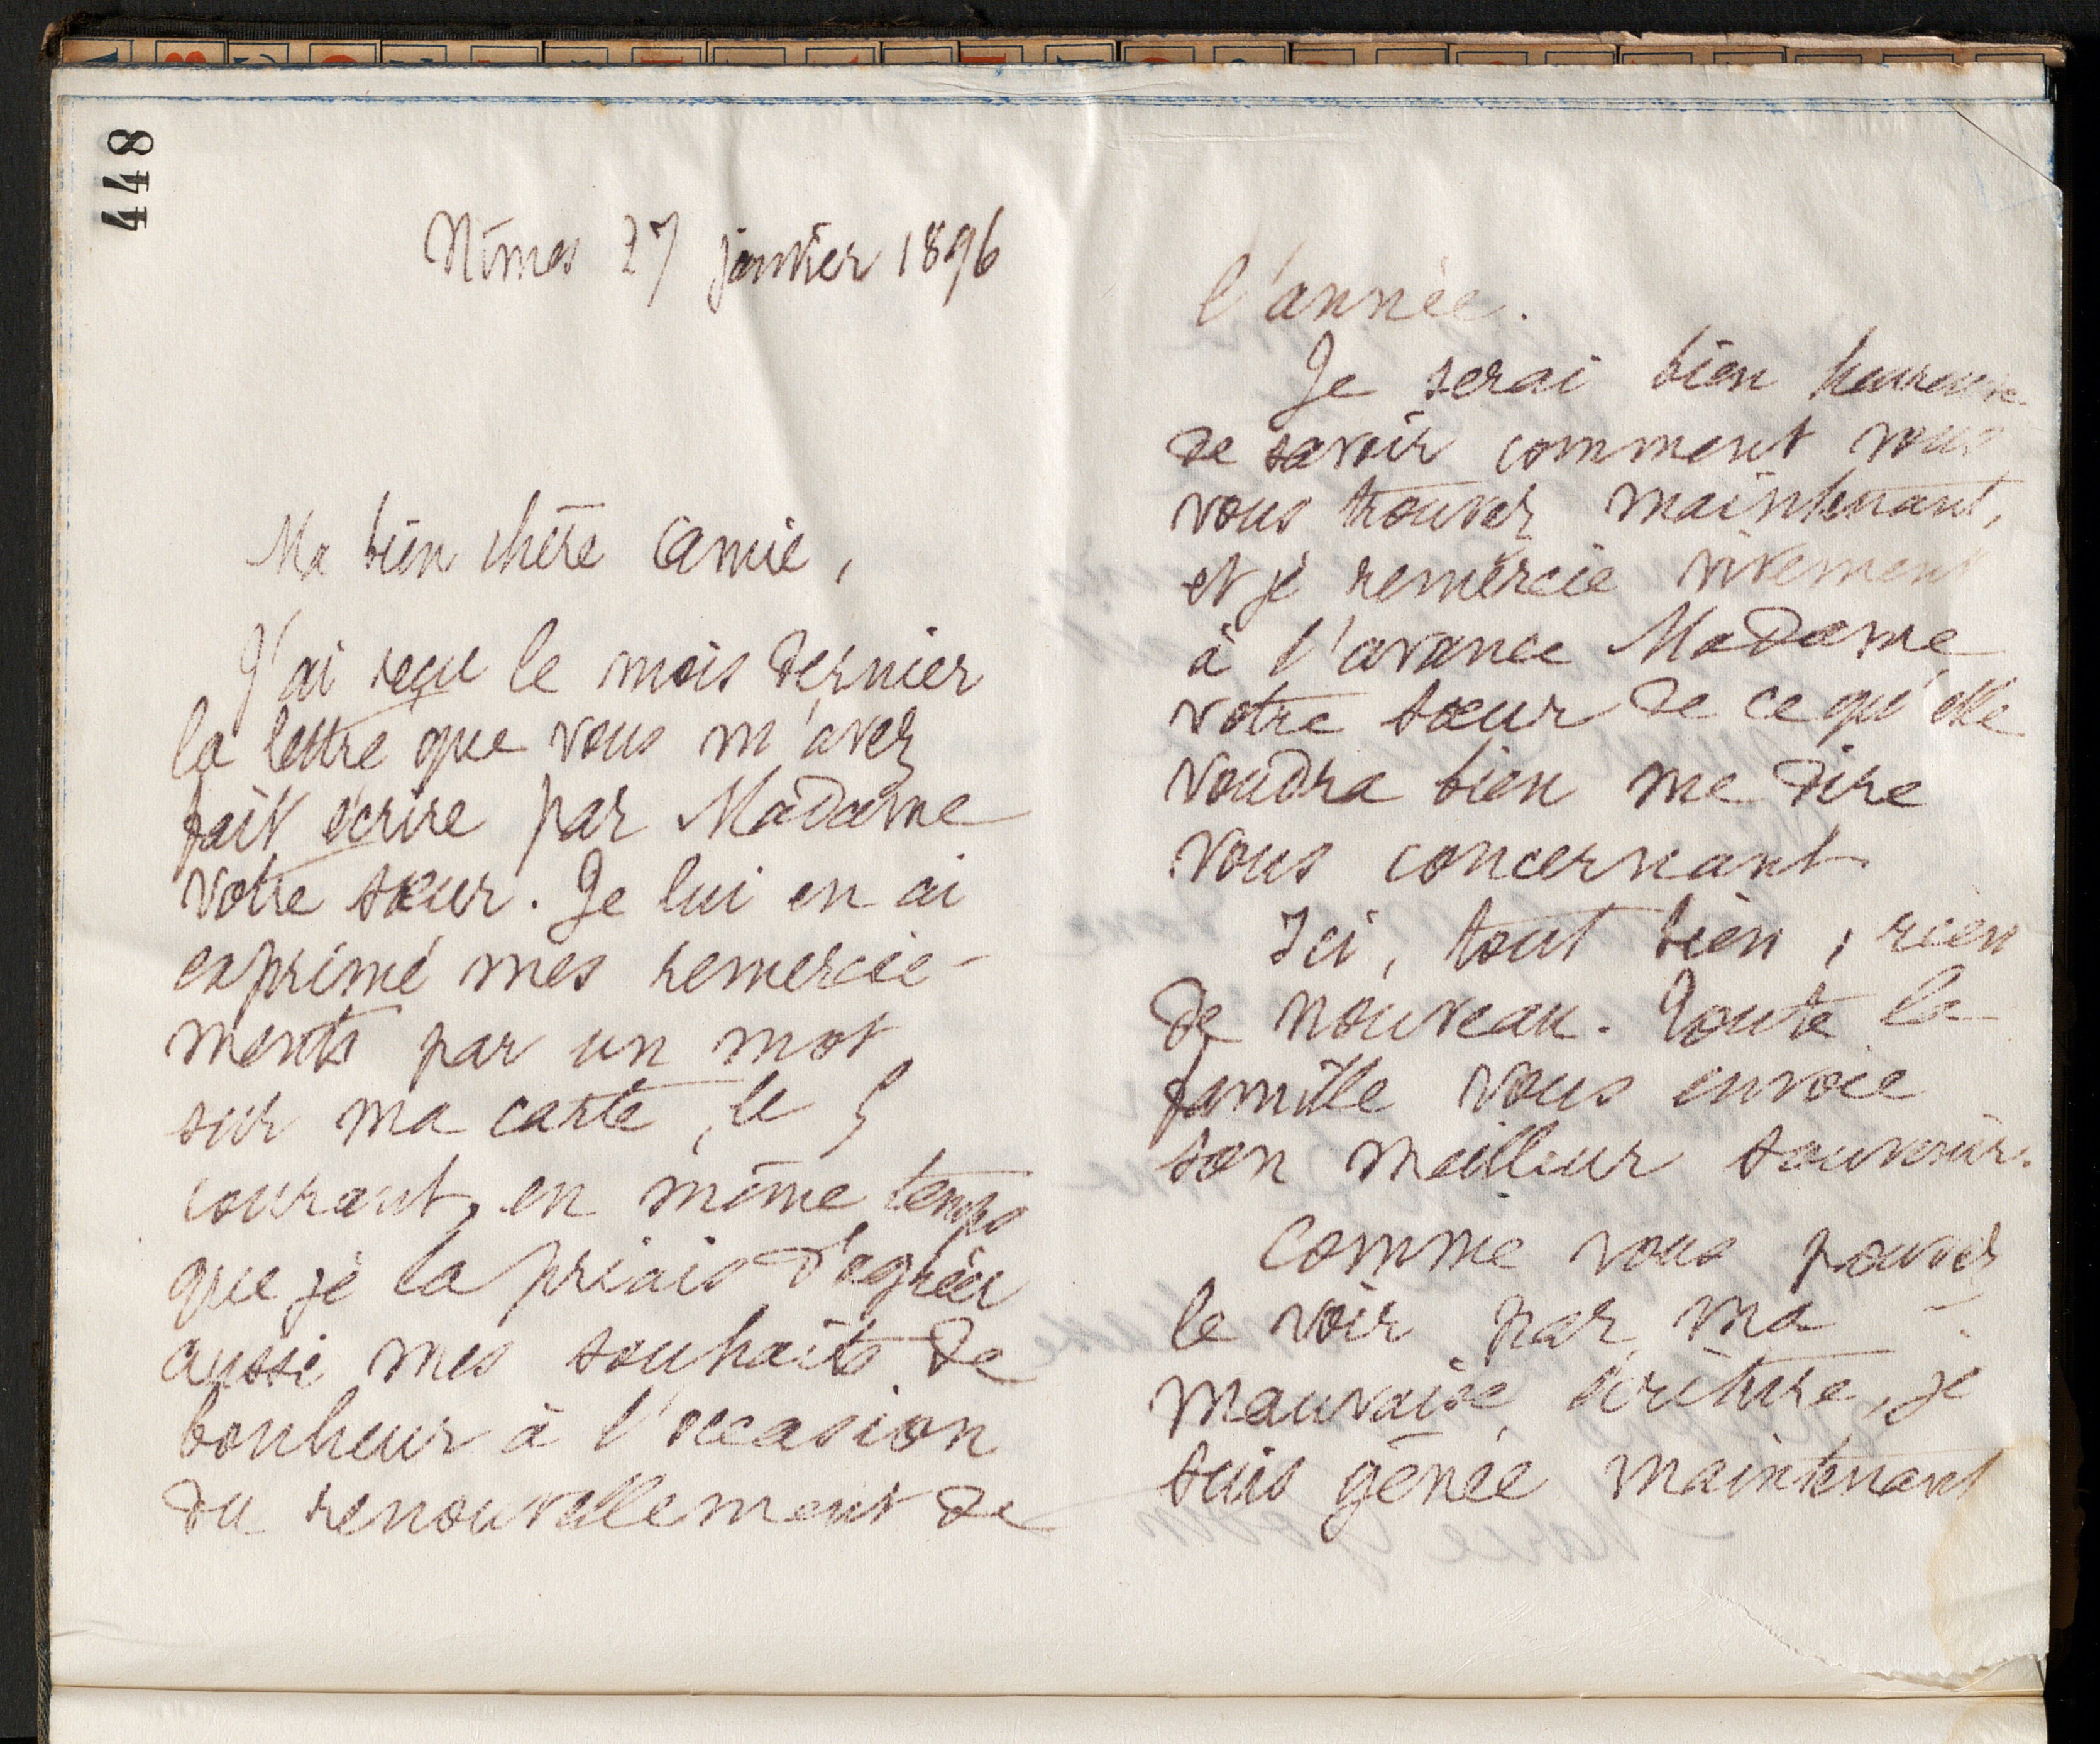 448
Nîmes 27 janvier 1896
Ma bien chère amie,
J'ai reçu le mois dernier
la lettre que vous m'avez
fait écrire par Madame
votre sœur. Je lui en ai
exprimé mes remercie-
ments par un mot
sur ma carte, le 5
courant, en même temps
que je la priais d'agréer
aussi mes souhaits de
bonheur à l'occasion
du renouvellement de
l'année.
Je serai bien heureuse
de savoir comment vous
vous trouvez maintenant,
et je remercie vivement
à l'avance Madame
votre sœur de ce qu'elle
voudra bien me dire
vous concernant
Ici, tout bien, rien
de nouveau. Toute la
famille vous envoie
son meilleur souvenir.
Comme vous pouvez
le voir par ma
mauvaise écriture, je
suis gênée maintenant